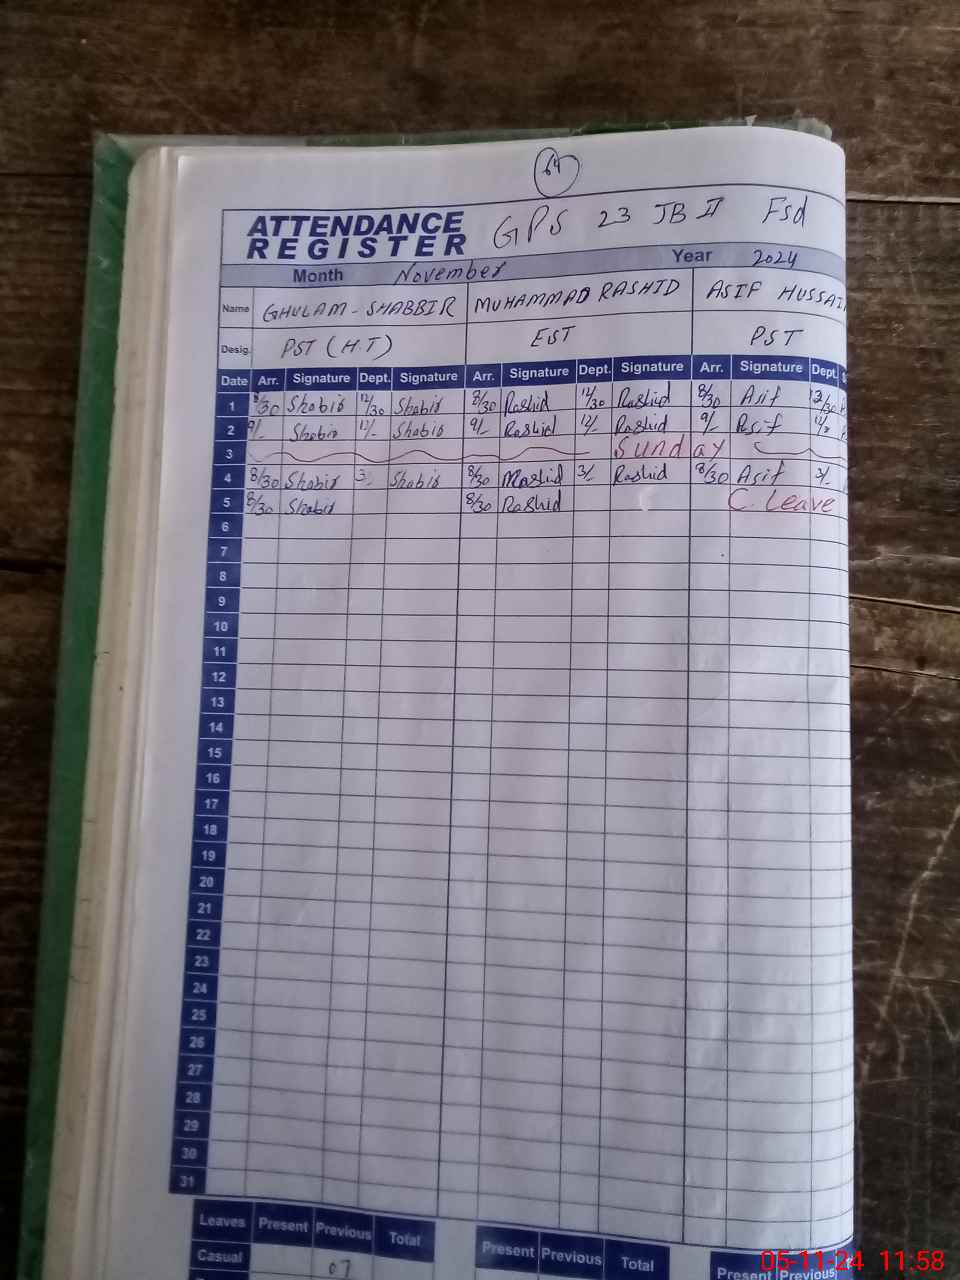 64
ATTENDANCE REGISTER GPS 23 JB II Fsd
Month November Year 2024
Name GHULAM-SHABBIR MUHAMMAD RASHID ASIF HUSSAI
Desig. PST (H.T) EST PST
Date Arr. Signature Dept. Signature Arr. Signature Dept. Signature Arr. Signature Dept. S
1 8/30 Shabir 12/30 Shabir 8/30 Rashid 12/30 Rashid 8/30 Asif 12/30
2 9/- Shabir 12/- Shabir 9/- Rashid 12/- Rashid 9/- Asif 12/-
3 Sunday
4 8/30 Shabir 3/- Shabir 8/30 Rashid 3/- Rashid 8/30 Asif 3/-
5 8/30 Shabir 8/30 Rashid C. Leave
6
7
8
9
10
11
12
13
14
15
16
17
18
19
20
21
22
23
24
25
26
27
28
29
30
31
Leaves Present Previous Total Present Previous Total Present Previous
Casual 07
05-11-24 11:58